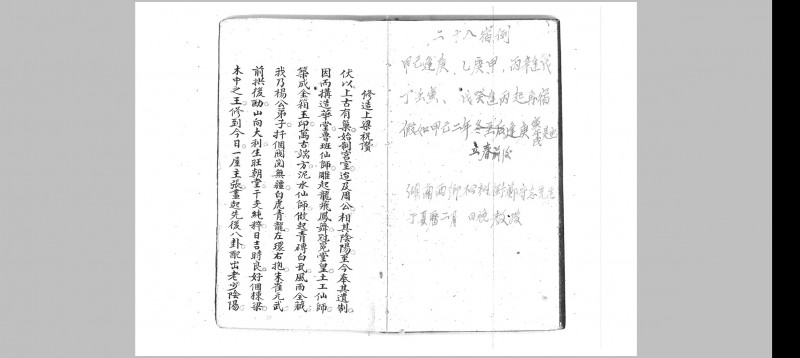 二十八宿例
甲己逢庚、乙庚甲、丙辛逢戊
丁壬寅、戊癸逢丙起角宿
假如甲己二年冬至后逢庚
立春前後
修造上梁祝讚
伏以上古有巢始制宮室迨及周公相其陰陽至今奉其遺制
因而搆造華堂魯班仙師雕起龍飛鳳舞冠冕堂皇土工仙師
築成金箱玉印萬古端方泥水仙師做起青磚白瓦風雨金緘
我乃楊公弟子扦個陽崗無疆白虎青龍左環右抱朱雀元武
前拱後勵山向大利生旺朝堂干支純粹日吉時良好個棟梁
木中之王修到今日一屋主張畫起先後八卦配出老少陰陽